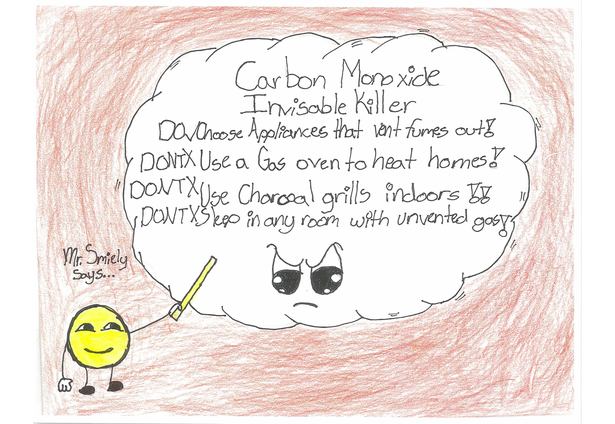 Carbon Monoxide
Invisable Killer
DO✓Choose Appliances that vent fumes out!
DONTX Use a Gas oven to heat homes!
DONTX Use Charcoal grills indoors !!
DONTX Sleep in any room with unvented gas!
Mr. Smiely
Says...